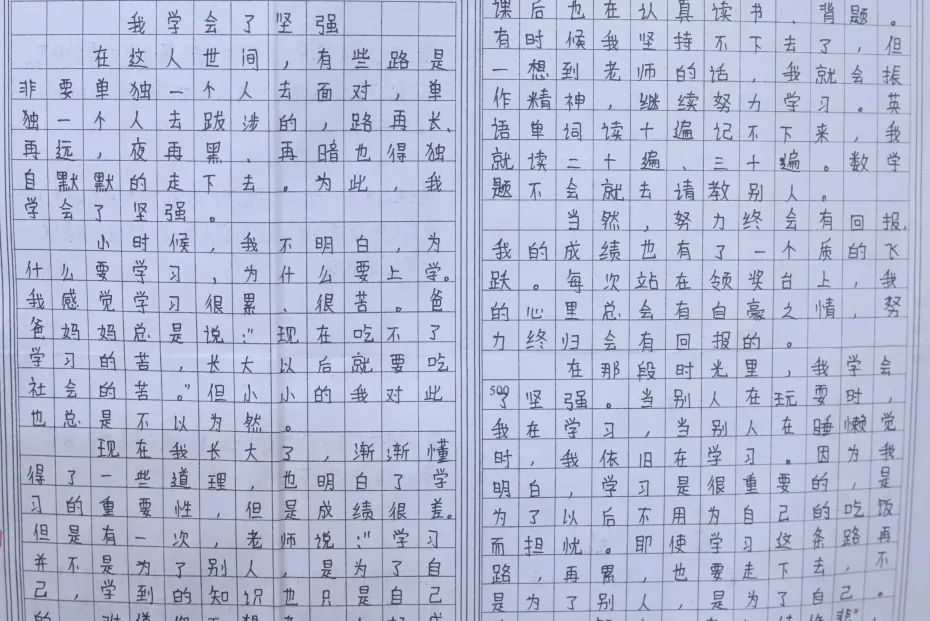 我学会了坚强
在这人世间，有些路是
非要单独一个人去面对，单
独一个人去跋涉的，路再长、
再远，夜再黑、再暗也得独
自默默的走下去。为此，我
学会了坚强。
小时候，我不明白，为
什么要学习，为什么要上学。
我感觉学习很累、很苦。爸
爸妈妈总是说："现在吃不了
学习的苦，长大以后就要吃
社会的苦。"但小小的我对此
也总是不以为然。
现在我长大了，渐渐懂
得了一些道理，也明白了学
习的重要性，但是成绩很差。
但是有一次，老师说："学习
并不是为了别人，是为了自
己，学到的知识也只是自己
课后也在认真读书、背题。
有时候我坚持不下去了，但
一想到老师的话，我就会振
作精神，继续努力学习。英
语单词读十遍记不下来，我
就读二十遍、三十遍。数学
题不会就去请教别人。
当然，努力终会有回报，
我的成绩也有了一个质的飞
跃。每次站在领奖台上，我
的心里总会有自豪之情，努
力终归会有回报的。
在那段时光里，我学会
500
了坚强。当别人在玩耍时，
我在学习，当别人在睡懒觉
时，我依旧在学习。因为我
明白，学习是很重要的，是
为了以后不用为自己的吃饭
而担忧。即使学习这条路再
路，再累，也要走下去，不
是为了别人，是为了自己。